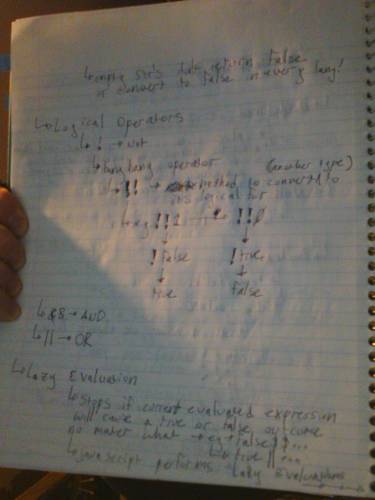 ↳ empty str's don't return false
or convert to false in every lang!
↳ Logical Operators
↳ ! → not
↳ bang bang operator (another type)
↳ !! → method to convert to
its logical for
↳ eg !!1 !!0
!false !true
true false
↳ && → AND
↳ || → OR
↳ Lazy Evaluation
↳ Stops if current evaluated expression
will cause a true or false outcome
no mater what → eg false && ...
↳ true || ...
↳ javascript performs Lazy Evaluations